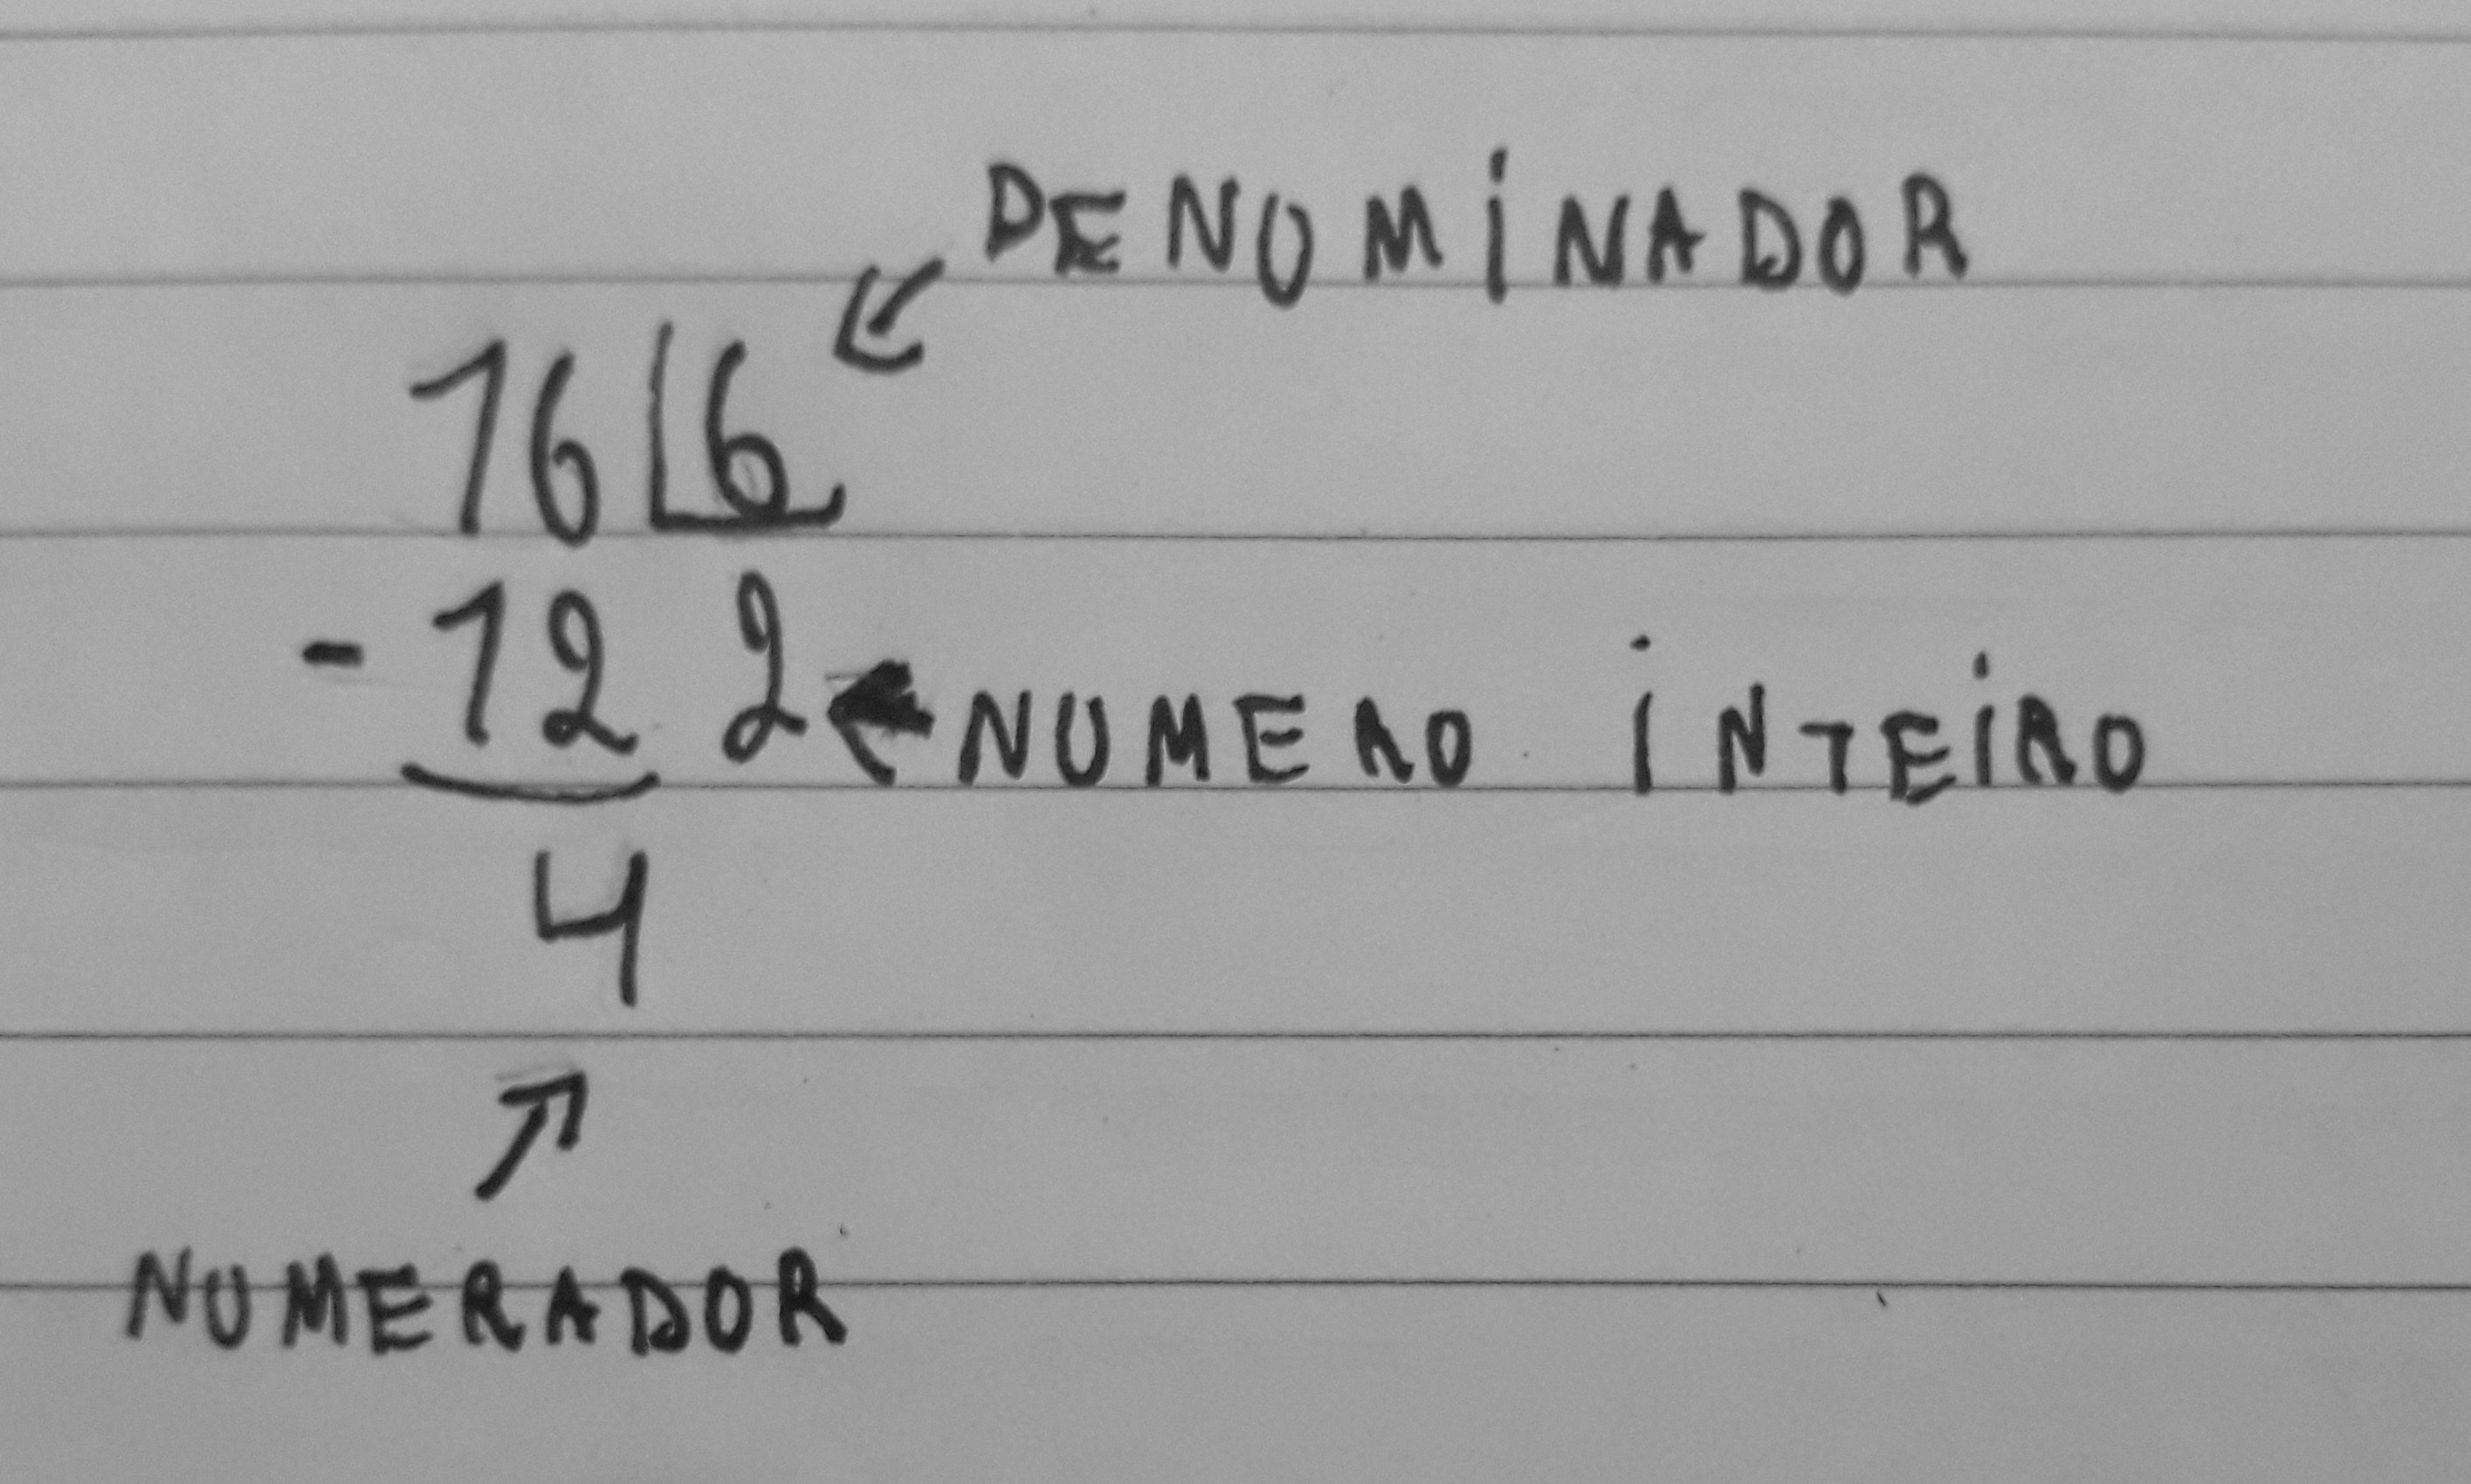 DENUMINADOR
16 6
- 12 2 NUMERO INTEIRO
4
NUMERADOR